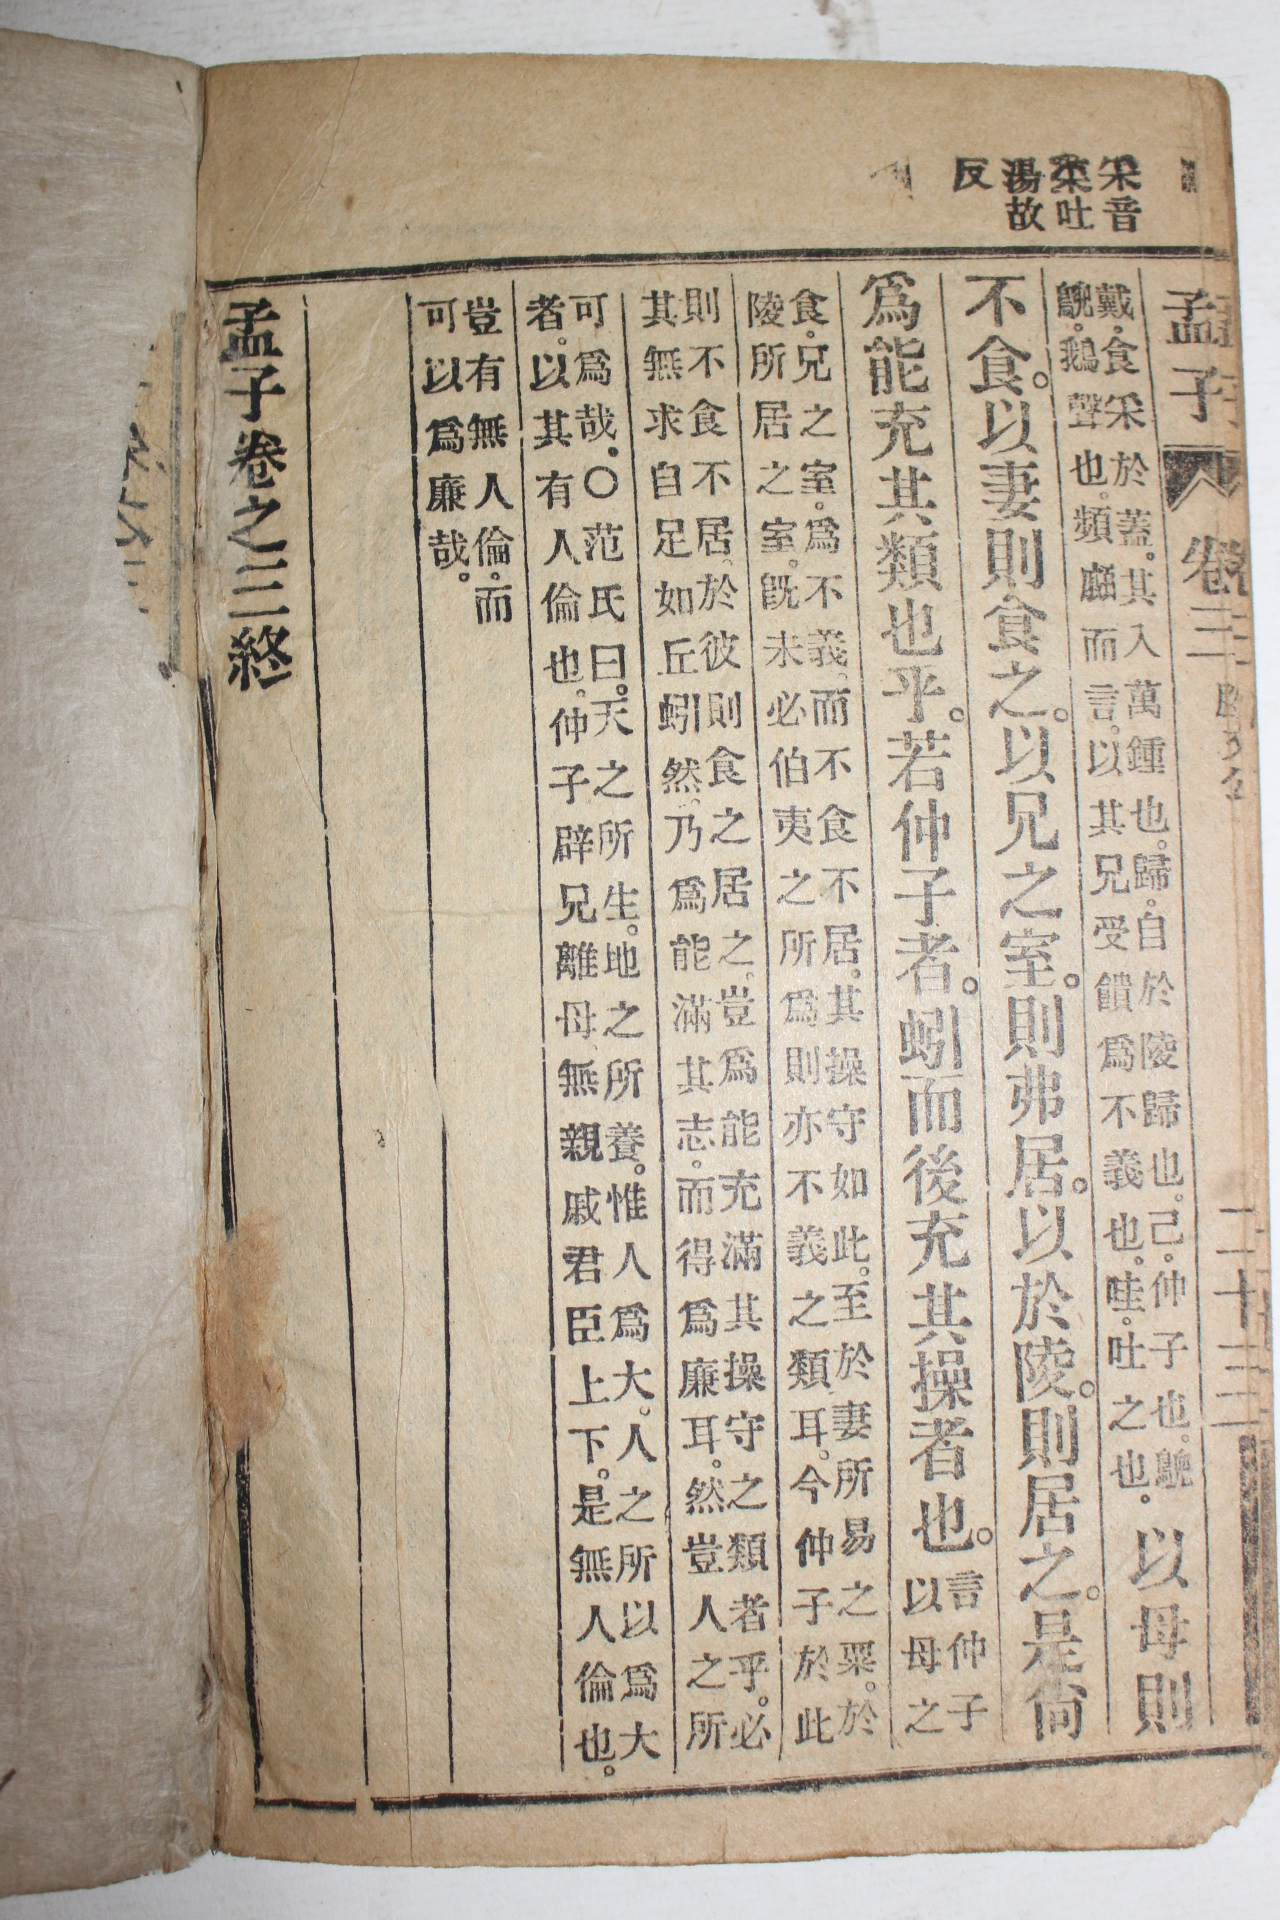 采音
菜吐
湯故
反
孟子 卷三 二十三
戴。食采於蓋。其入萬鍾也。歸。自於陵歸也。己。仲子也。鶃
鶃。鵝聲也。頻顣而言。以其兄受饋爲不義也。哇。吐之也。
以母則
不食。以妻則食之。以兄之室。則弗居。以於陵。則居之。是尙
爲能充其類也乎。若仲子者。蚓而後充其操者也。
言仲子
以母之
食。兄之室。爲不義。而不食不居。其操守如此。至於妻所易之粟。於
陵所居之室。旣未必伯夷之所爲則亦不義之類耳。今仲子於此
則不食不居。於彼則食之居之。豈爲能充滿其操守之類者乎。必
其無求自足如丘蚓然。乃爲能滿其志。而得爲廉耳。然豈人之所
可爲哉。〇范氏曰。天之所生。地之所養。惟人爲大。人之所以爲大
者。以其有人倫也。仲子辟兄離母無親戚君臣上下。是無人倫也。
豈有無人倫。而
可以爲廉哉。
孟子卷之三終